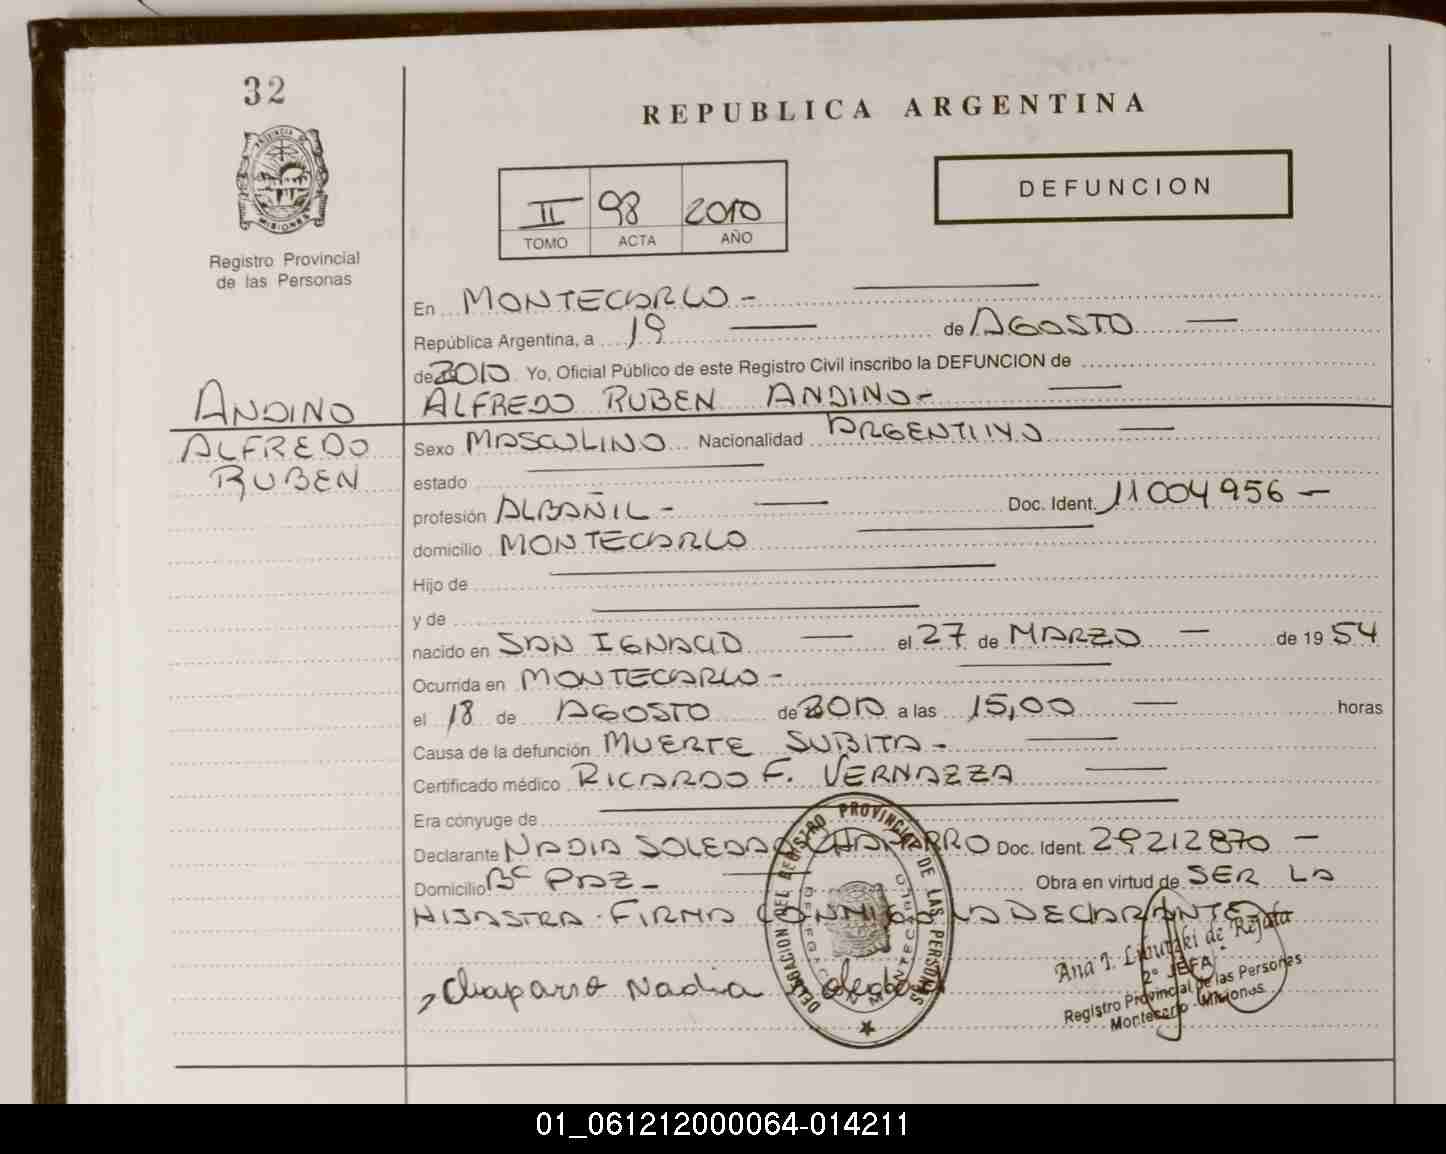 32
REPUBLICA ARGENTINA
PROVINCIA DE
MISIONES
Registro Provincial
de las Personas
DEFUNCION
II 98 2010
TOMO ACTA AÑO
En MONTECARLO -
República Argentina, a 19 de AGOSTO
de 2010 Yo, Oficial Público de este Registro Civil inscribo la DEFUNCION de
ANDINO
ALFREDO RUBEN ANDINO -
ALFREDO
RUBEN
Sexo MASCULINO Nacionalidad ARGENTINO
estado
profesión ALBAÑIL - Doc. Ident. 11004956 -
domicilio MONTECARLO
Hijo de
y de
nacido en SAN IGNACIO el 27 de MARZO de 1954
Ocurrida en MONTECARLO -
el 18 de AGOSTO de 2010 a las 15,00 horas
Causa de la defunción MUERTE SUBITA -
Certificado médico RICARDO F. VERNAZZA
Era cónyuge de
Declarante NADIA SOLEDAD CHAPARRO Doc. Ident. 29212870 -
Domicilio Bº PAZ - Obra en virtud de SER LA
HIJASTRA - FIRMA CONMIGO LA DECLARANTE
Chaparro Nadia Soledad
DELEGACION DEL REGISTRO PROVINCIAL DE LAS PERSONAS
DELEGACION MONTECARLO
Ana I. de
2º JEFA
Registro Provincial de las Personas
Montecarlo - Misiones
01_061212000064-014211